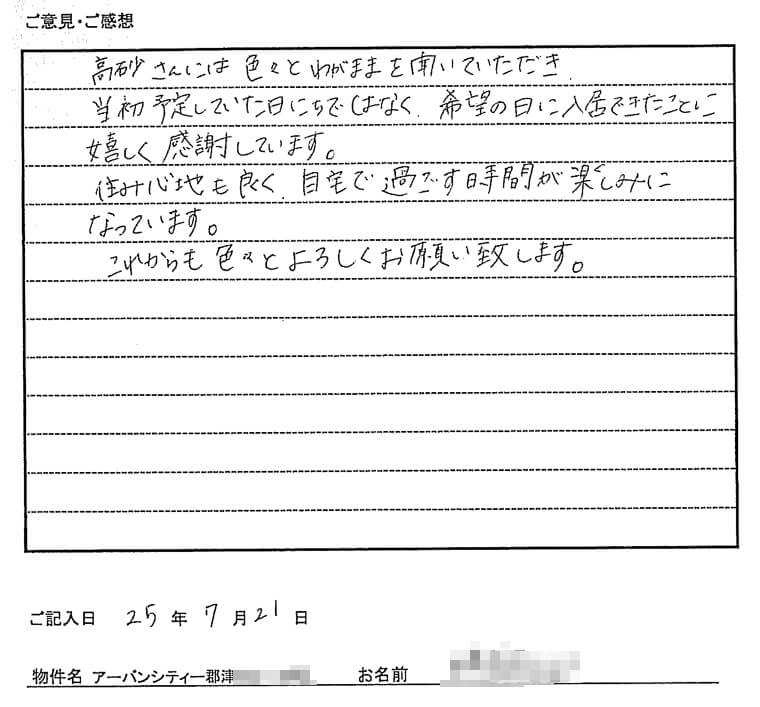 ご意見・ご感想
高砂さんには色々とわがままを聞いていただき
当初予定していた日にちではなく、希望の日に入居できたことに
嬉しく感謝しています。
住み心地も良く、自宅で過ごす時間が楽しみに
なっています。
これからも色々とよろしくお願い致します。
ご記入日 25 年 7 月 21 日
物件名 アーバンシティー郡津 お名前